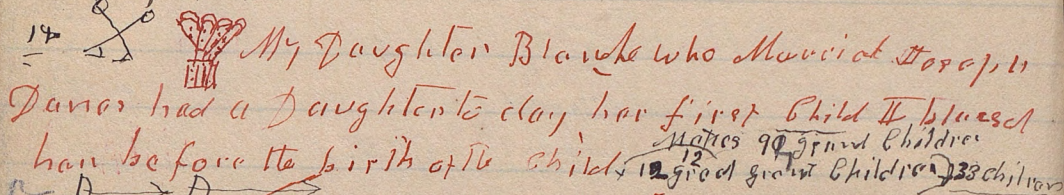 14 My Daughter Blanche who Maried Joseph
Danes had a Daughter to day her first Child I blessd
her before the birth of the Child
Makes 99 grand Children
12 gred grand Children 33 chilren